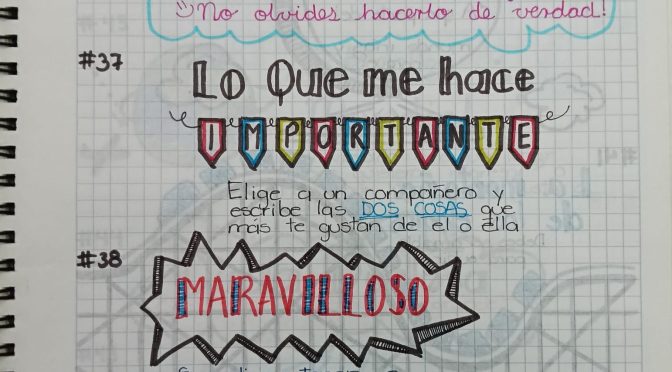 ¡No olvides hacerlo de verdad!
#37
Lo Que me hace
IMPORTANTE
Elige a un compañero y
escribe las DOS COSAS que
más te gustan de el o ella
#38
MARAVILLOSO